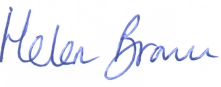 Helen Brown